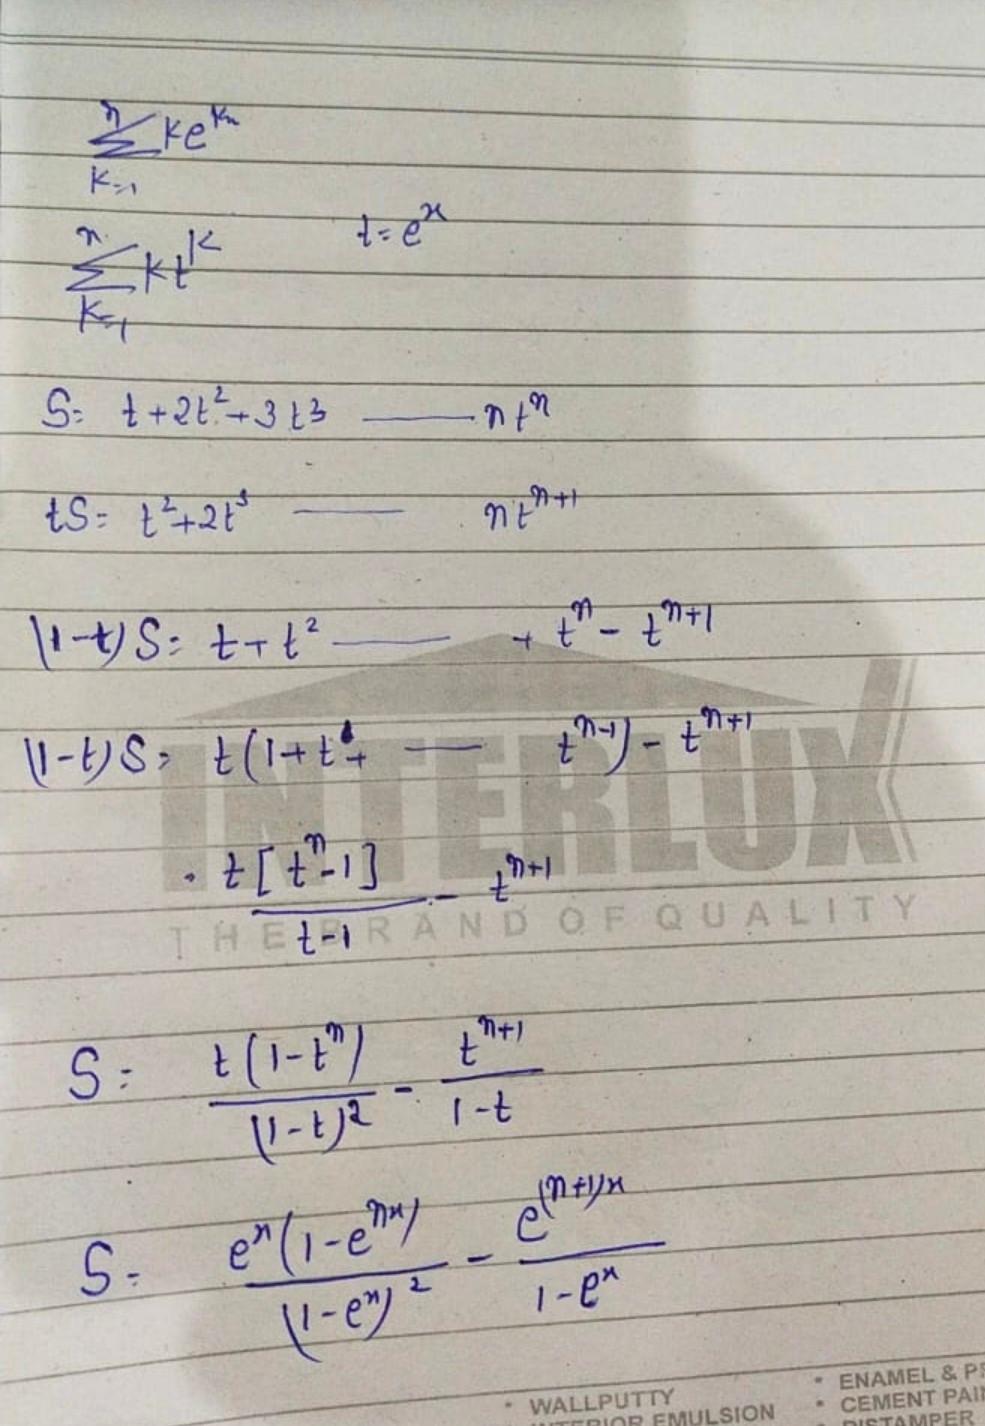 n
∑ke^{kx}
k=1
n
∑kt^k t=e^x
k=1
S= t+2t^2+3t^3 —— nt^n
tS= t^2+2t^3 —— nt^{n+1}
(1-t)S= t+t^2 —— + t^n - t^{n+1}
(1-t)S= t(1+t+ —— t^{n-1}) - t^{n+1}
= t[t^n-1]/t-1 - t^{n+1}
S= t(1-t^n)/(1-t)^2 - t^{n+1}/1-t
S= e^x(1-e^{nx})/(1-e^x)^2 - e^{(n+1)x}/1-e^x
INTERLUX
THE BRAND OF QUALITY
• WALLPUTTY • ENAMEL &
INTERIOR EMULSION • CEMENT
DISTAMPER